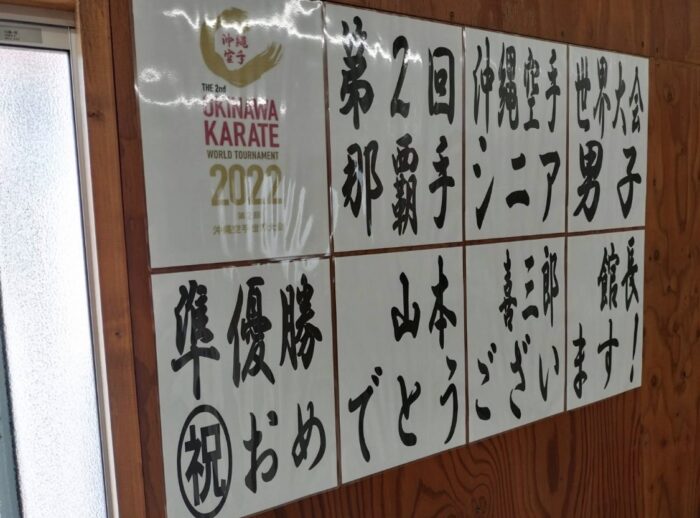 沖縄
空手
THE 2nd
OKINAWA
KARATE
WORLD TOURNAMENT
2022
第2回
沖縄空手世界大会
第2回 沖縄空手 世界大会
那覇手 シニア 男子
準優勝 山本 喜三郎 館長
㊗おめでとうございます!